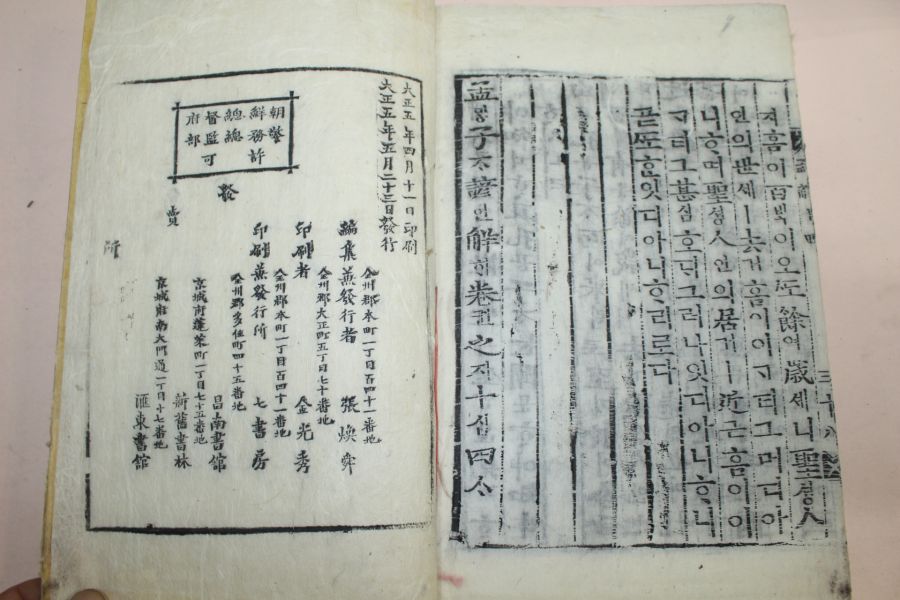 지흠이百ᄇᆡᆨ이오ᄯᅩ餘여歲셰니聖셩人
인의世셰ㅣ去거흠이이ᄀᆞ티그머디아
니ᄒᆞ며聖셩人인의居거ㅣ近근흠이이
ᄀᆞ티그甚심호ᄃᆡ그러나잇디아니ᄒᆞ니
곧ᄯᅩᄒᆞᆫ잇디아니ᄒᆞ리로다
孟ᄆᆡᆼ子ᄌᆞ諺언解ᄒᆡ卷권之지十십四ᄉᆞ
三十八
大正五年四月十一日印刷
大正五年五月二十三日發行
朝鮮總督府
警務總監部
許可
全州郡本町一丁目百四十一番地
編集兼發行者 張煥舜
全州郡大正町五丁目七十番地
印刷者 金光秀
全州郡本町一丁目百四十一番地
印刷兼發行所 七書房
發賣所
全州郡多佳町四十五番地
昌南書館
京城府蓬萊町一丁目七十五番地
新舊書林
京城府南大門通一丁目十七番地
滙東書館